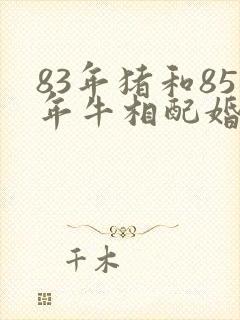 83年猪和85
年牛相配婚
千木